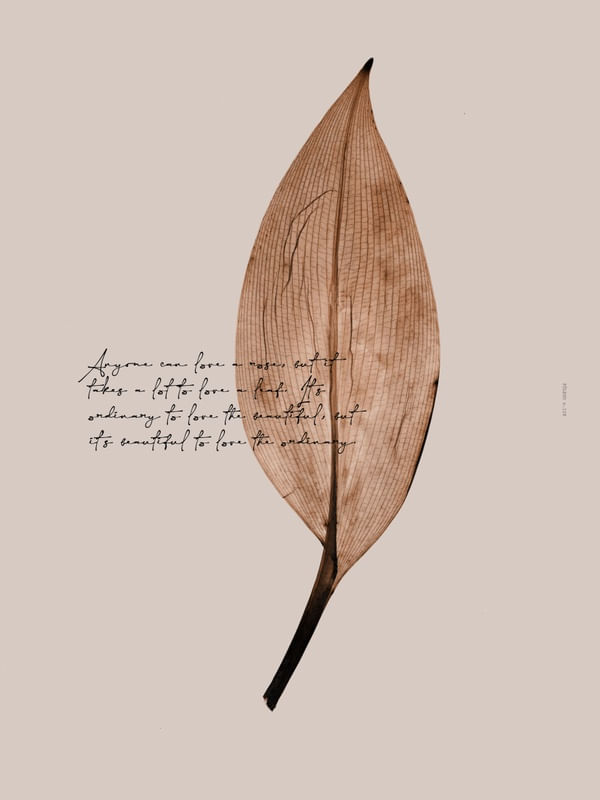 Anyone can love a rose, but it
takes a lot to love a leaf. It's
ordinary to love the beautiful, but
it's beautiful to love the ordinary.